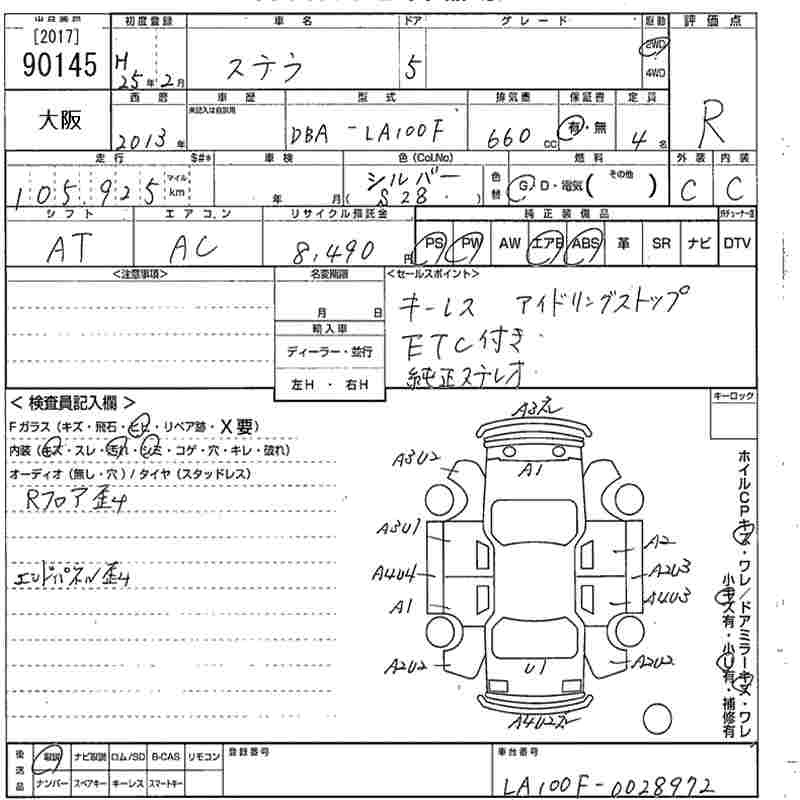 出品番号 初度登録 車名 ドア グレード 駆動 評価点
[2017] 90145 H 25年 2月 ステラ 5 2WD 4WD R
大阪 西暦 車歴 型式 排気量 保証書 定員
未記入は自家用
2013年 DBA-LA100F 660cc 有・無 4名
走行 $#* 車検 色(Col.No) 燃料 外装 内装
105,925 マイル km 年 月 シルバー (S28) 色替 G・D・電気( その他 ) C C
シフト エアコン リサイクル預託金 純正装備品
AT AC 8,490円 PS PW AW エアB ABS 革 SR ナビ DTV
<注意事項> 名変期限 <セールスポイント>
月 日 キーレス アイドリングストップ
輸入車
ディーラー・並行 ETC付き
左H・右H 純正ステレオ
<検査員記入欄> キーロック
Fガラス(キズ・飛石・ヒビ・リペア跡・X要)
内装(キズ・スレ・汚れ・シミ・コゲ・穴・キレ・破れ)
オーディオ(無し・穴)/タイヤ(スタッドレス)
Rフロア歪4
エンドパネル歪4
A3ズレ
A3U2 A1
A3U1 A2
A4U4 A2U3
A1 A4U3
A2U2 U1 A2U2
A4U2ズレ
ホイルCPキズ・ワレ/ドアミラーキズ・ワレ
小キズ有・小U有・補修有
後送品 取説 ナビ取説 ロム/SD B-CAS リモコン 登録番号 車台番号
ナンバー スペアキー キーレス スマートキー LA100F-0028972